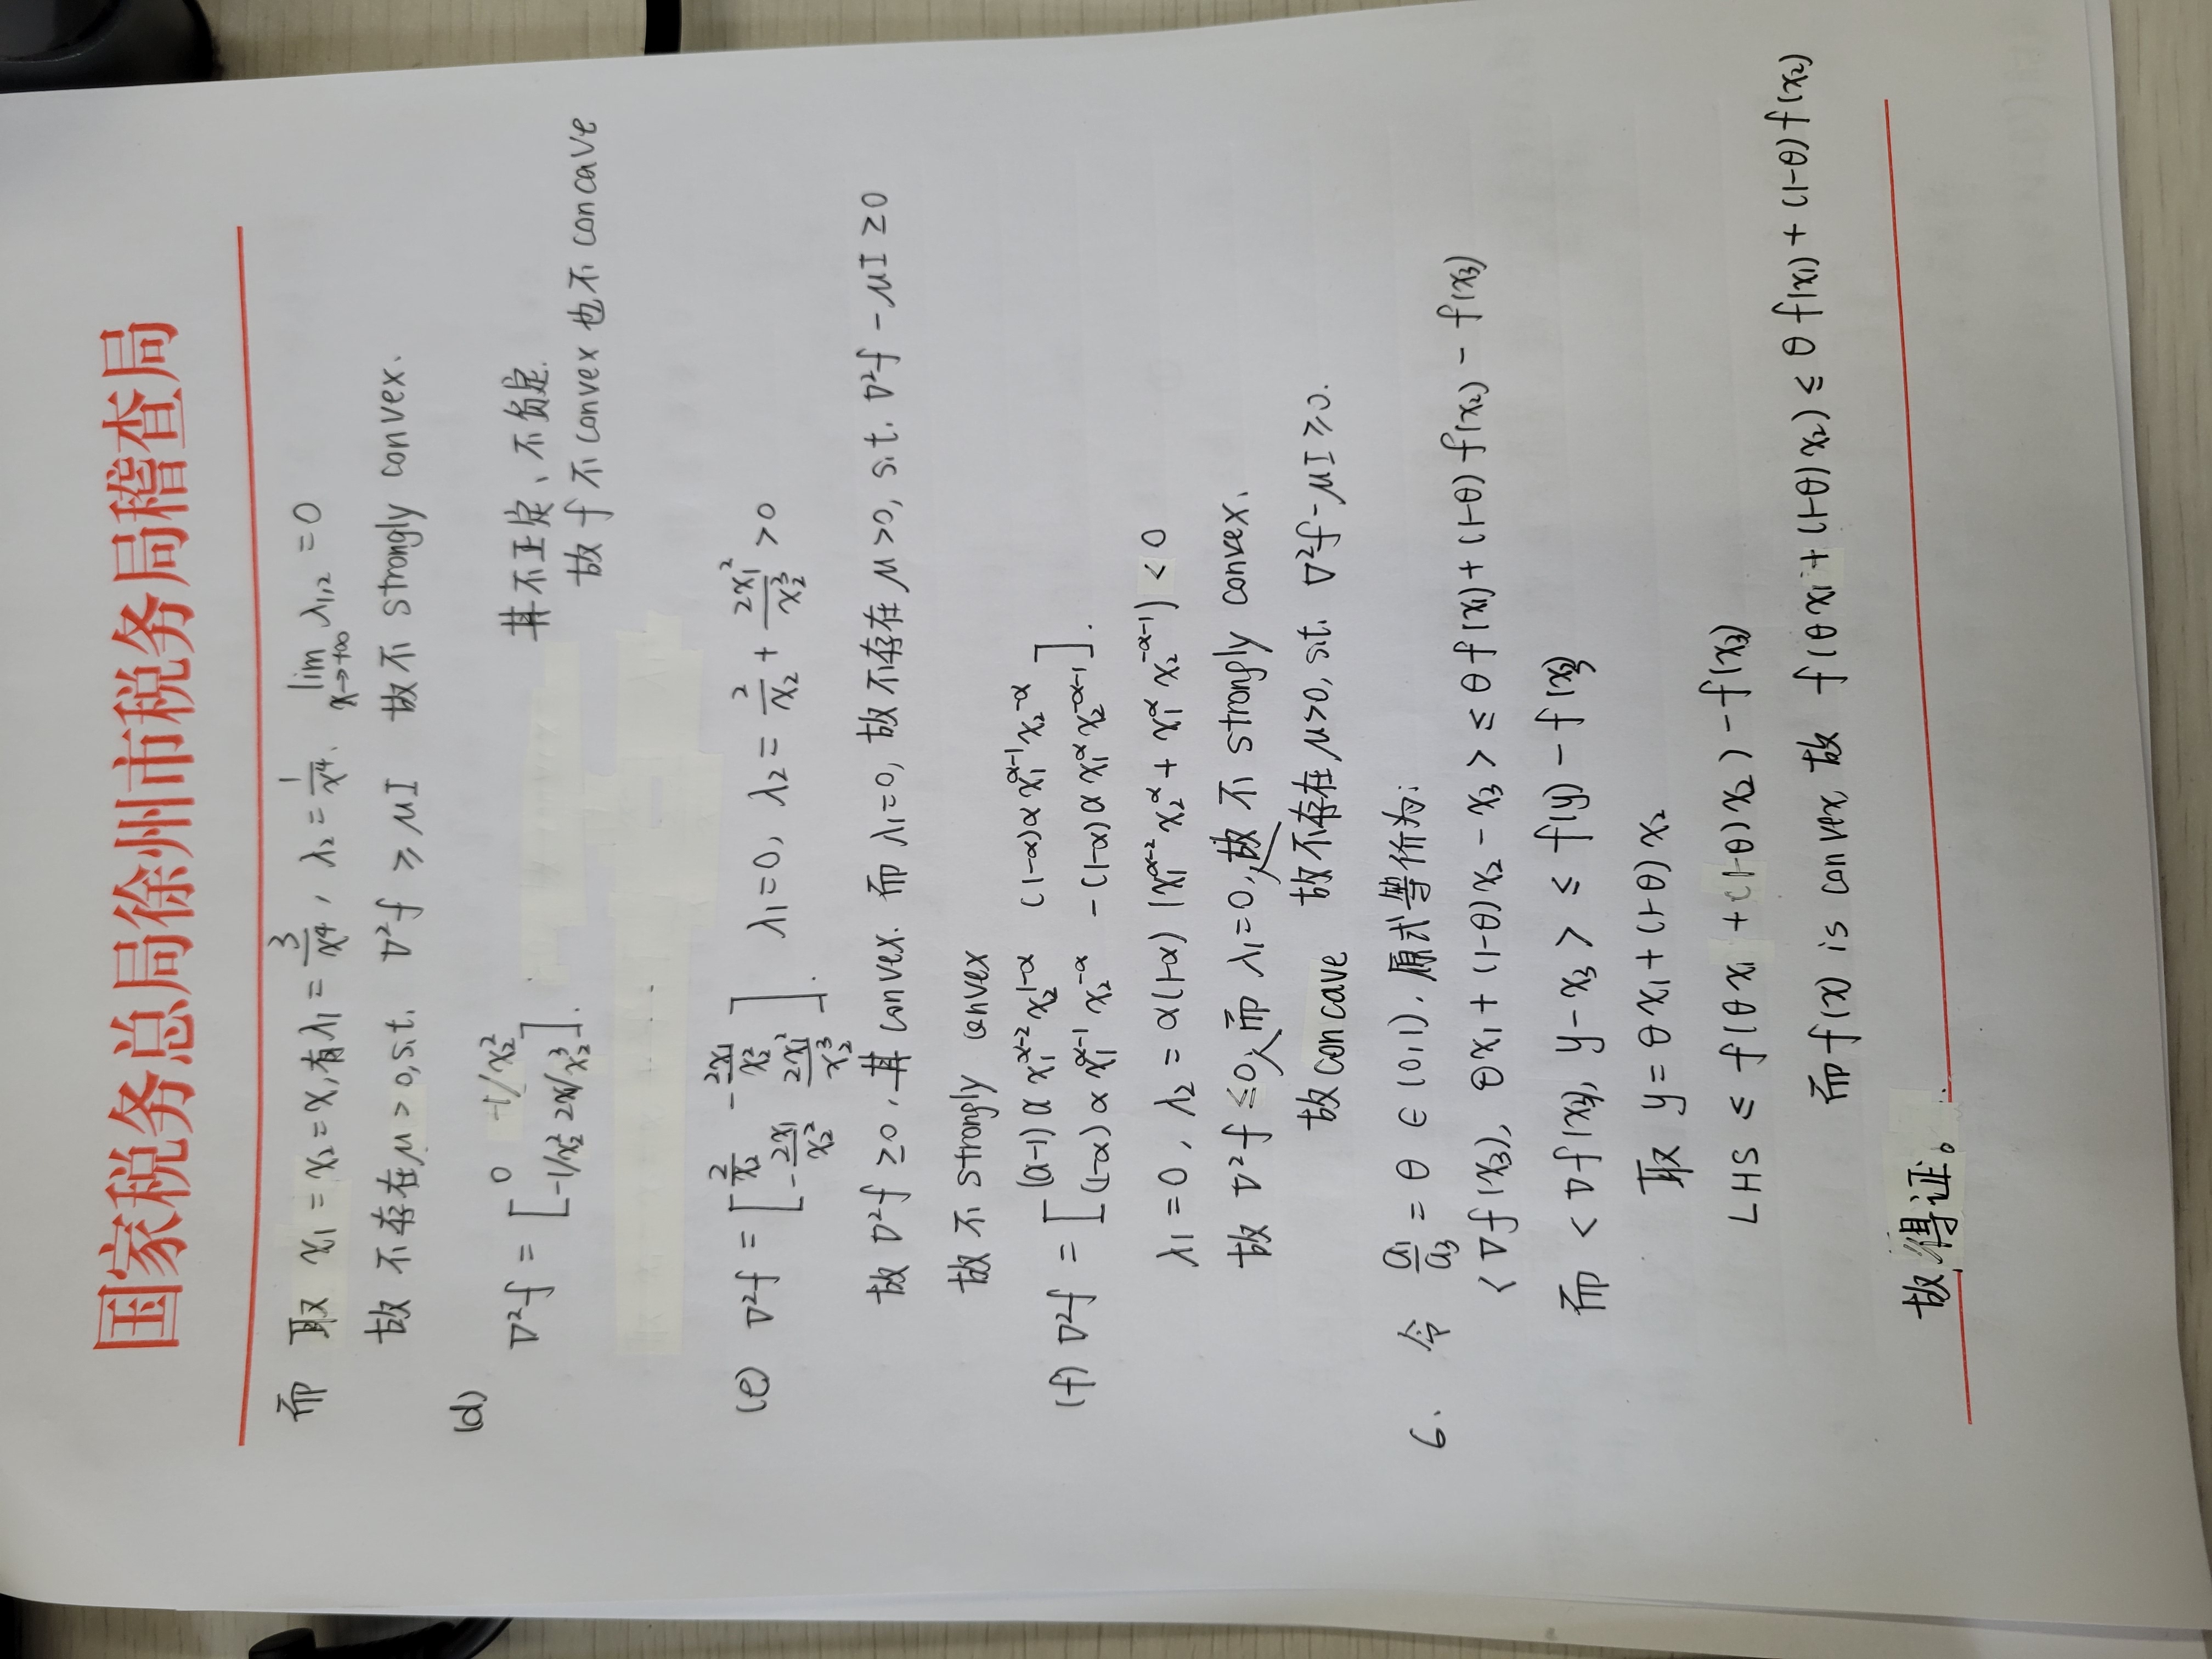 国家税务总局徐州市税务局稽查局
而 取 x₁ = x₂ = x, 有 λ₁ = 3/x⁴, λ₂ = 1/x⁴. lim_{x→+∞} λ₁,₂ = 0
故 不存在 μ > 0, s.t. ∇²f ≥ μI 故不 strongly convex.
(d)
∇²f = [0 -1/x₂² ; -1/x₂² 2x₁/x₂³]. 其不正定、不负定.
故 f 不 convex 也不 concave
(e) ∇²f = [2/x₂ -2x₁/x₂² ; -2x₁/x₂² 2x₁²/x₂³]. λ₁=0, λ₂ = 2/x₂ + 2x₁²/x₂³ > 0
故 ∇²f ≥0, 其 convex. 而 λ₁=0, 故不存在 μ>0, s.t. ∇²f - μI ≥ 0
故不 strongly convex
(f) ∇²f = [(α-1)α x₁^{α-2} x₂^{1-α} (1-α)α x₁^{α-1} x₂^{-α} ; (1-α)α x₁^{α-1} x₂^{-α} -(1-α)α x₁^α x₂^{-α-1}].
λ₁ = 0, λ₂ = α(1-α) (x₁^{α-2} x₂^α + x₁^α x₂^{-α-1}) < 0
故 ∇²f ≤ 0, 而 λ₁=0, 故 不 strongly convex.
故 concave 故不存在 μ>0, s.t. ∇²f - μI ≥ 0.
6. 令 a₁/a₃ = θ ∈ (0,1). 原式等价为:
< ∇f(x₃), θx₁ + (1-θ)x₂ - x₃ > ≤ θf(x₁) + (1-θ)f(x₂) - f(x₃)
而 < ∇f(x₃), y - x₃ > ≤ f(y) - f(x₃)
取 y = θx₁ + (1-θ)x₂
LHS ≤ f(θx₁ + (1-θ)x₂) - f(x₃)
而 f(x) is convex, 故 f(θx₁ + (1-θ)x₂) ≤ θf(x₁) + (1-θ)f(x₂)
故得证。